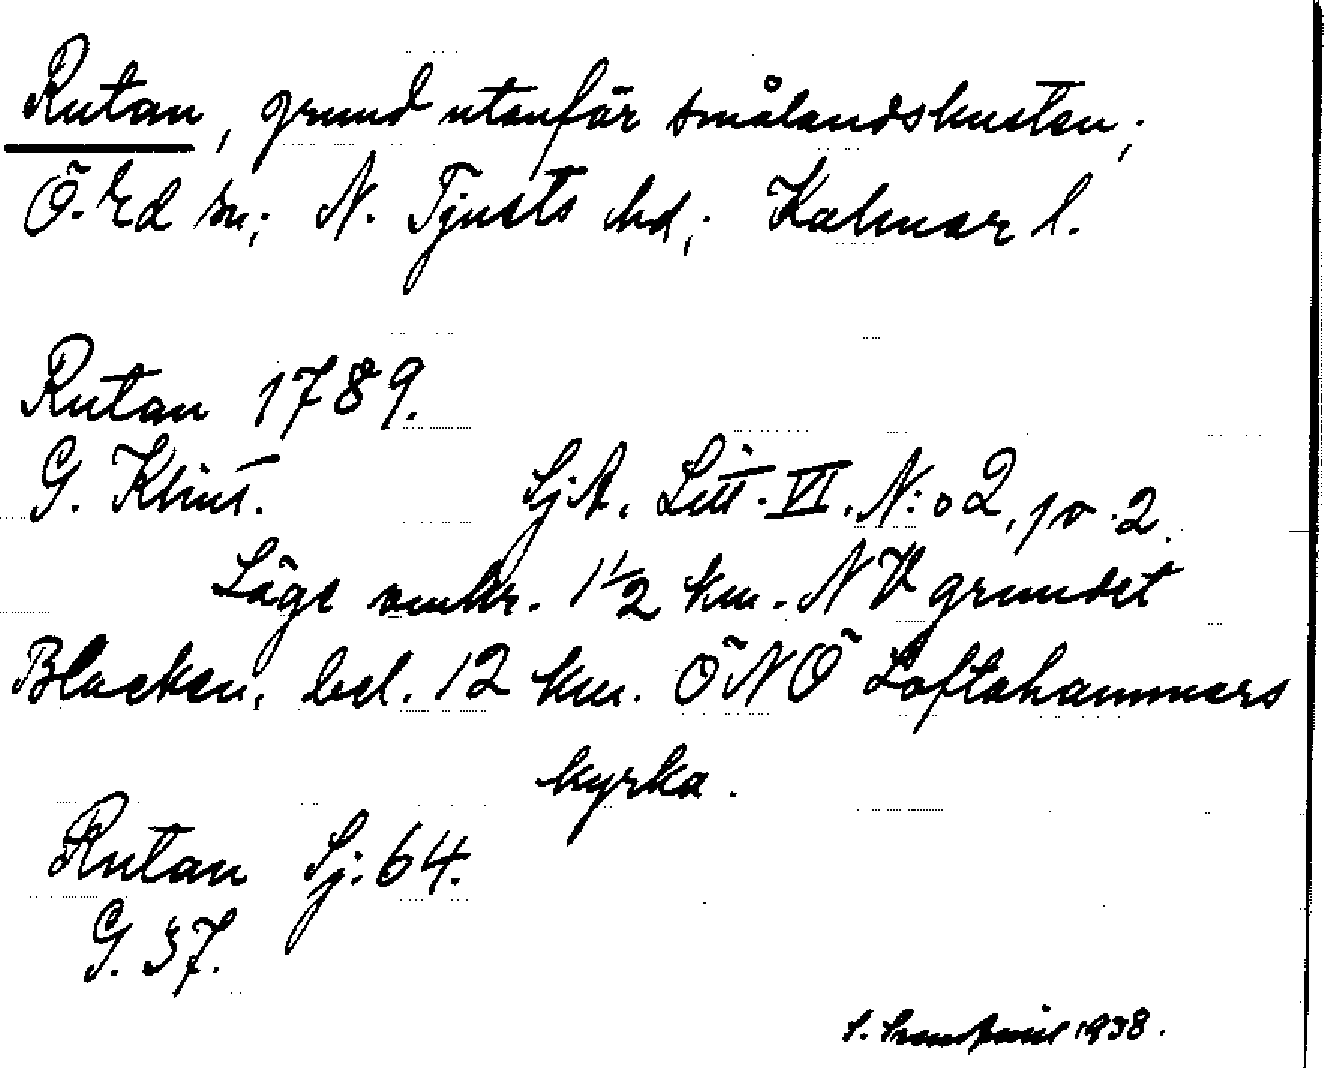 Rutan, grund utanför smålandskusten;
Ö. Ed sn; N. Tjusts hd; Kalmar l.
Rutan 1789.
G. Klint. Sj.A. Litt. VI. N:o 2, p. 2.
Läge omkr. 1 1/2 km. NV grundet
Blacken, bel. 12 km. ÖNÖ Loftahammars
kyrka.
Rutan Sj: 64.
G. 37.
S. 1938.